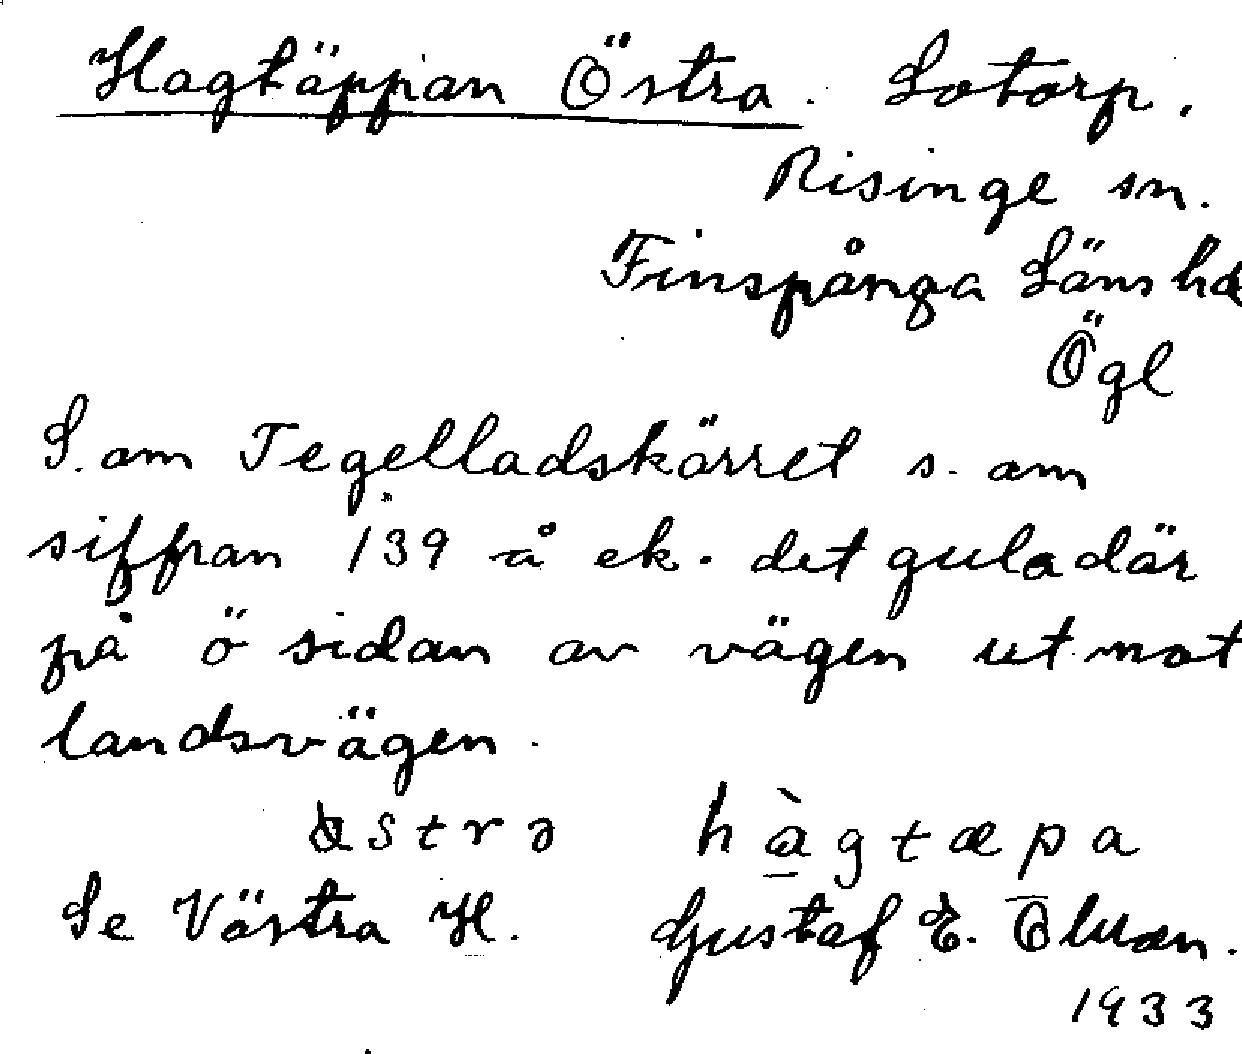 Hagtäppan Östra. Lotorp.
Risinge sn.
Finspånga Läns hd
Ögl
S. om Tegelladskärret s. om
siffran 139 å ek. det gula där
på ö sidan av vägen ut mot
landsvägen.
östrə hàgtæpa
Se Västra H. Gustaf E. Öhman.
1933